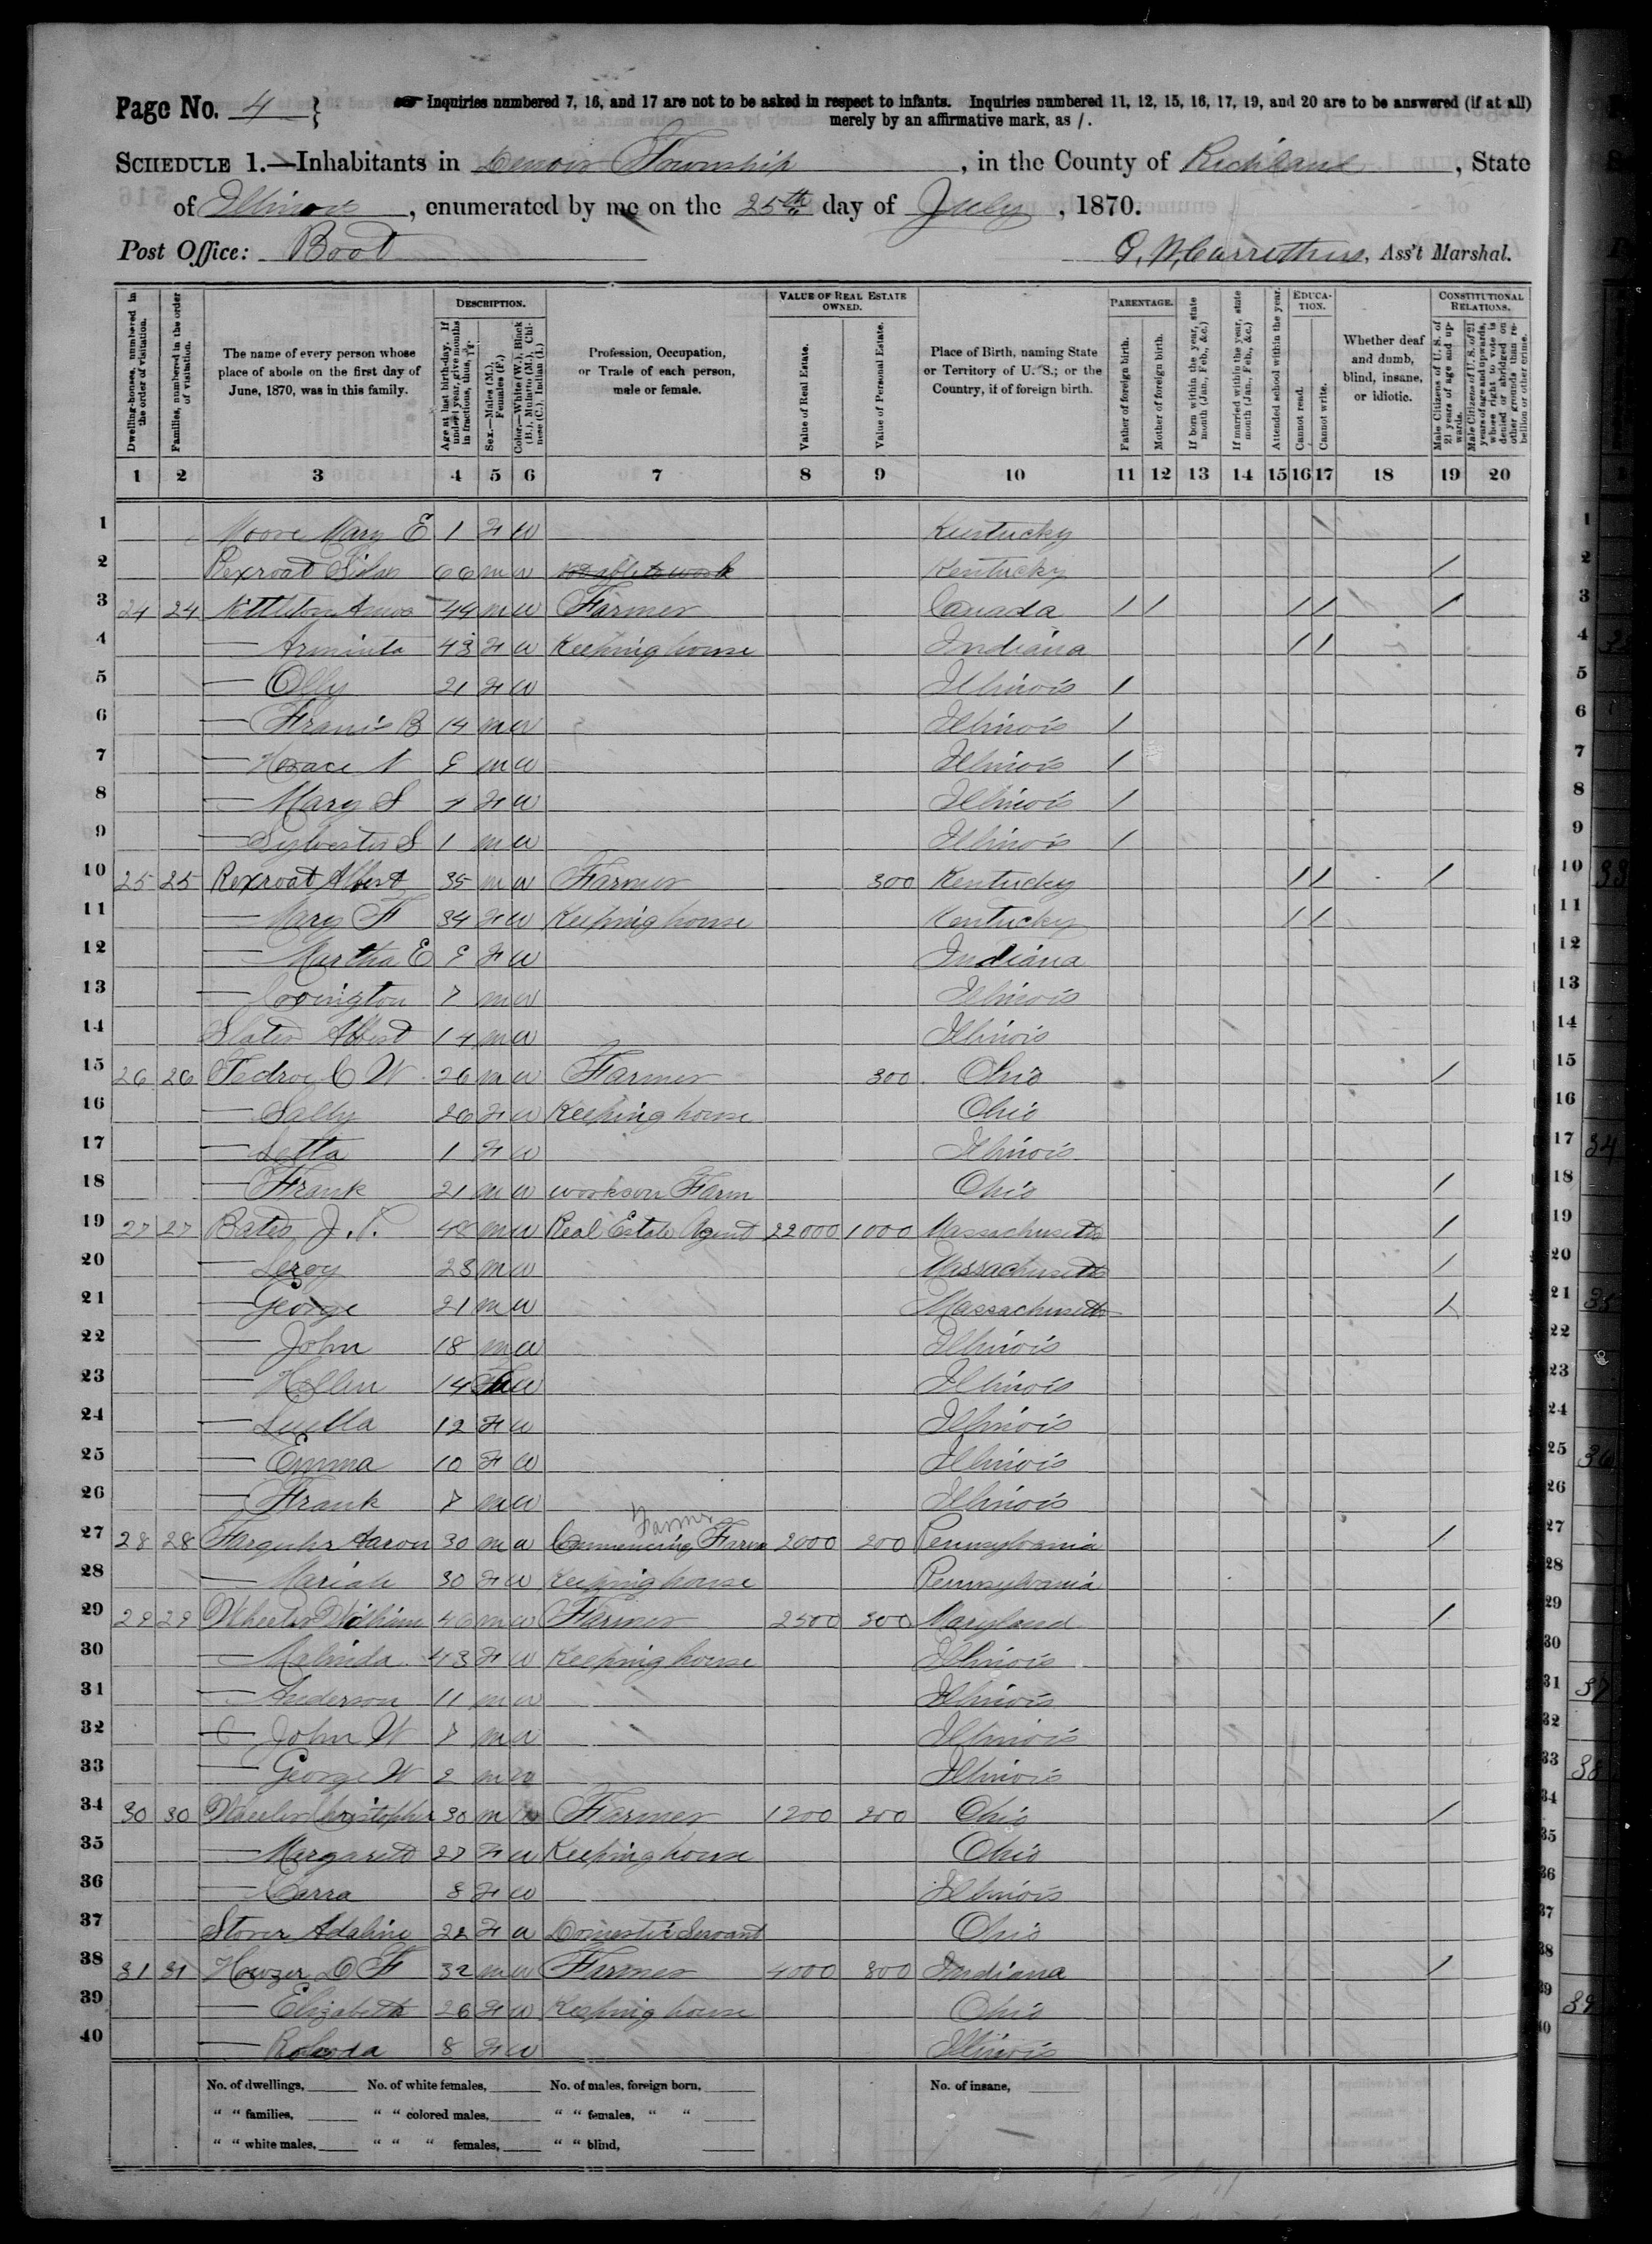 Page No. 4 }
Inquiries numbered 7, 16, and 17 are not to be asked in respect to infants. Inquiries numbered 11, 12, 15, 16, 17, 19, and 20 are to be answered (if at all)
merely by an affirmative mark, as /.
SCHEDULE 1.—Inhabitants in Township, in the County of Richland, State
of Illinois, enumerated by me on the 25th day of July, 1870.
Post Office: Boot
Ass't Marshal.
Dwelling-houses, numbered in the order of visitation.
Families, numbered in the order of visitation.
The name of every person whose place of abode on the first day of June, 1870, was in this family.
DESCRIPTION.
Age at last birth-day. If under 1 year, give months in fractions, thus,
Sex.—Males (M.), Females (F.)
Color.—White (W.), Black (B.), Mulatto (M.), Chinese (C.), Indian (I.)
Profession, Occupation, or Trade of each person, male or female.
VALUE OF REAL ESTATE OWNED.
Value of Real Estate.
Value of Personal Estate.
Place of Birth, naming State or Territory of U. S.; or the Country, if of foreign birth.
PARENTAGE.
Father of foreign birth.
Mother of foreign birth.
If born within the year, state month (Jan., Feb., &c.)
If married within the year, state month (Jan., Feb., &c.)
Attended school within the year.
EDUCATION.
Cannot read.
Cannot write.
Whether deaf and dumb, blind, insane, or idiotic.
CONSTITUTIONAL RELATIONS.
Male Citizens of U. S. of 21 years of age and upwards.
Male Citizens of U. S. of 21 years of age and upwards, whose right to vote is denied or abridged on other grounds than rebellion or other crime.
1 2 3 4 5 6 7 8 9 10 11 12 13 14 15 16 17 18 19 20
1 Moore Mary E 1 F W Kentucky
2 Rexroat 66 M W not able to work Kentucky /
3 24 24 44 M W Farmer Canada / / / / /
4 — Arminta 43 F W Keeping house Indiana / /
5 — Olly 21 F W Illinois /
6 — Francis B 14 M W Illinois /
7 — Horace N 9 M W Illinois /
8 — Mary S 4 F W Illinois /
9 — Sylvester S 1 M W Illinois /
10 25 25 Rexroat Albert 35 M W Farmer 300 Kentucky / / /
11 — Mary F 34 F W Keeping house Kentucky / /
12 — Martha E 9 F W Indiana
13 — Covington 7 M W Illinois
14 Slater Albert 14 M W Illinois
15 26 26 Fedroe C W 26 M W Farmer 300 Ohio /
16 — Sally 26 F W Keeping house Ohio
17 — Letta 1 F W Illinois
18 — Frank 21 M W works on Farm Ohio /
19 27 27 Bates J. P. 48 M W Real Estate Agent 22000 1000 Massachusetts /
20 — Leroy 23 M W Massachusetts /
21 — George 21 M W Massachusetts /
22 — John 18 M W Illinois
23 — Hellen 14 F W Illinois
24 — Luella 12 F W Illinois
25 — Emma 10 F W Illinois
26 — Frank 7 M W Illinois
Farmer
27 28 28 Farquhr Aaron 30 M W Commencing Farm 2000 200 Pennsylvania /
28 — Mariah 30 F W Keeping house Pennsylvania
29 29 29 Wheeler William 46 M W Farmer 2500 300 Maryland /
30 — Malinda 43 F W Keeping house Illinois
31 — Anderson 11 M W Illinois
32 — John W 7 M W Illinois
33 — George W 2 M W Illinois
34 30 30 Wheeler Christopher 30 M W Farmer 1200 200 Ohio /
35 — Margarett 27 F W Keeping house Ohio
36 — Carra 8 F W Illinois
37 Stover Adaline 22 F W Domestic Servant Ohio
38 31 31 Howzer D F 32 M W Farmer 4000 800 Indiana /
39 — Elizabeth 26 F W Keeping house Ohio
40 — 8 F W Illinois
No. of dwellings, No. of white females, No. of males, foreign born, No. of insane,
" " families, " " colored males, " " females, " "
" " white males, " " " females, " " blind,